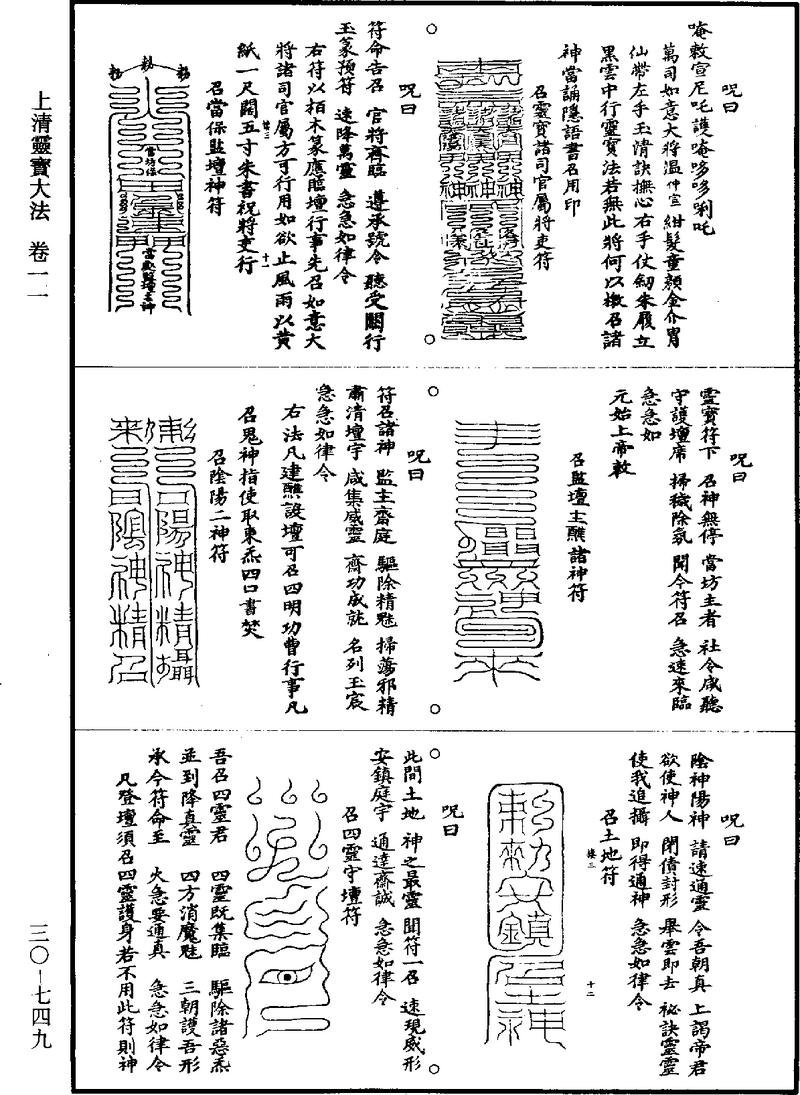 上清靈寶大法　卷一一
三〇—七四九
呪曰
唵敕宣尼吒護唵哆哆唎吒
萬司如意大將溫仲宣紺髮童顏金介冑
仙帶左手玉清訣撫心右手仗劒朱履立
黑雲中行靈寶法若無此將何以檄召諸
神當誦隱語書召用印
召靈寶諸司官屬將吏符
呪曰
符命告召　官將齊臨　遵承號令　聽受關行
玉篆預符　速降萬靈　急急如律令
右符以栢木篆應臨壇行事先召如意大
將諸司官屬方可行用如欲止風雨以黃
紙一尺闊五寸朱書祝將吏行
十一
召當保監壇神符
敕　敕　敕
當坊保
當處監壇土神
呪曰
靈寶符下　召神無停　當坊主者　社令咸聽
守護壇席　掃穢除氛　聞令符召　急速來臨
急急如
元始上帝敕
召監壇主醮諸神符
呪曰
符召諸神　監主齋庭　驅除精魅　掃蕩邪精
肅清壇宇　咸集威靈　齋功成就　名列玉宸
急急如律令
右法凡建醮設壇可召四明功曹行事凡
召鬼神指使取東炁四口書焚
召陰陽二神符
呪曰
陰神陽神　請速通靈　令吾朝真　上謁帝君
欲使神人　閉債封形　舉雲即去　祕訣靈靈
使我追攝　即得通神　急急如律令
召土地符
十二
敕安鎮
呪曰
此間土地　神之最靈　聞符一召　速現威形
安鎮庭宇　通達齋誠　急急如律令
召四靈守壇符
吾召四靈君　四靈既集臨　驅除諸惡炁
並到降真靈　四方消魔魅　三朝護吾形
承今符命至　火急要通真　急急如律令
凡登壇須召四靈護身若不用此符則神